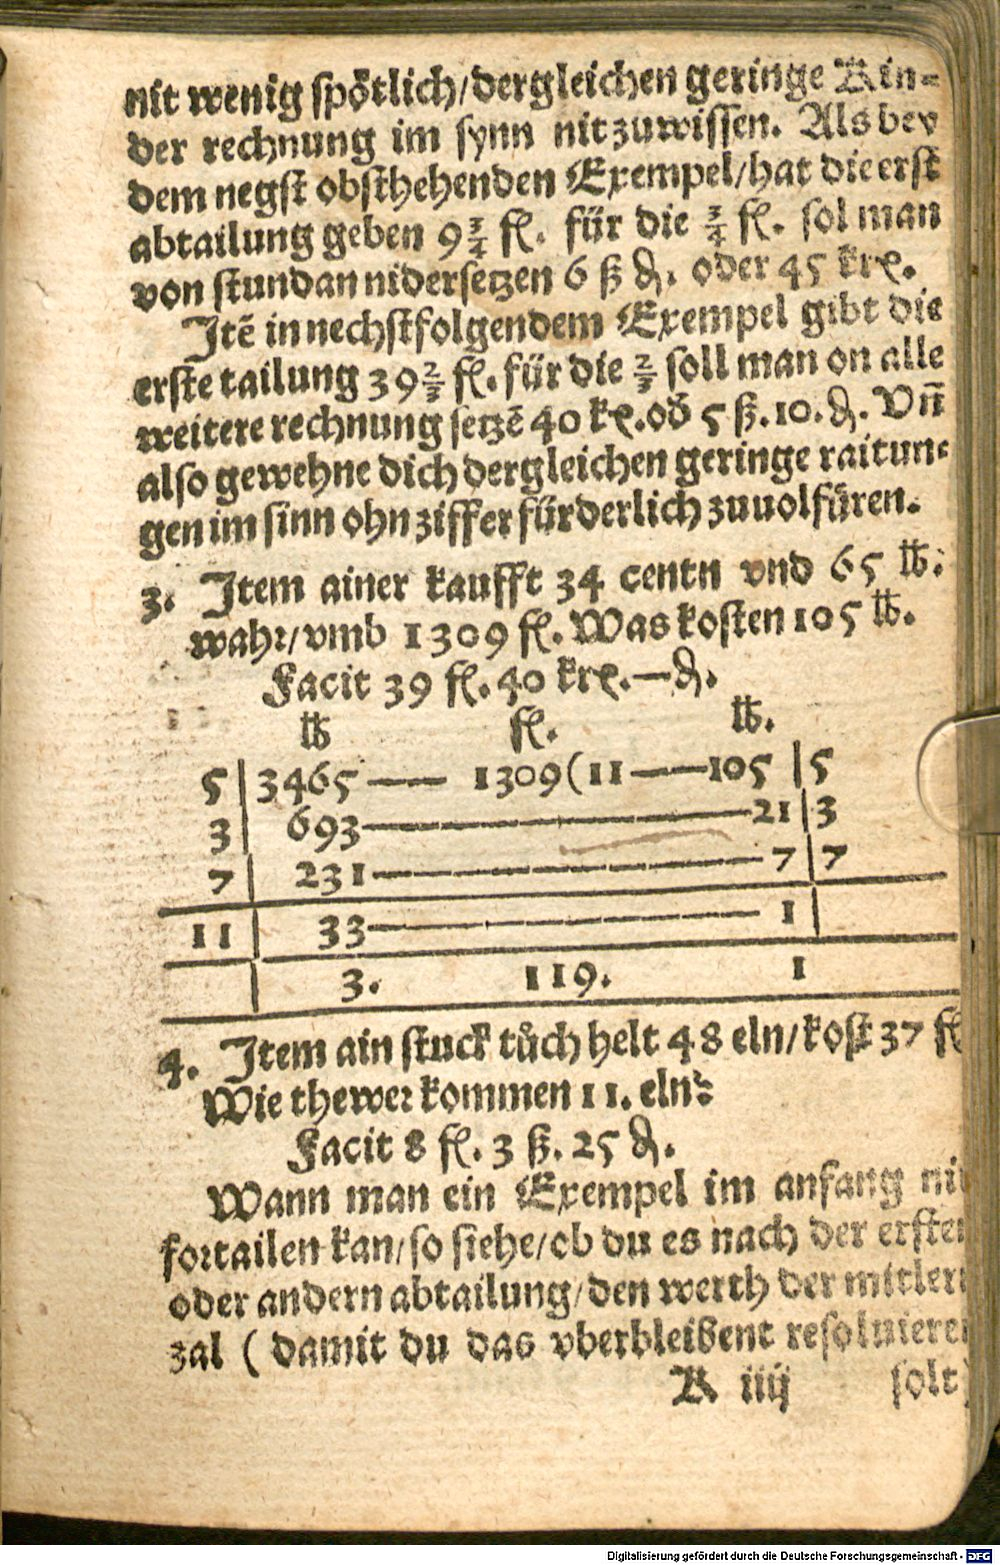 nit wenig spötlich/dergleichen geringe Kin-
der rechnung im synn nit zuwissen. Als bey
dem negst obsthehenden Exempel/hat die erst
abtailung geben 9¾ fl. für die ¾ fl. sol man
von stundan nidersetzen 6 ß ₰. oder 45 krx.
Itē in nechstfolgendem Exempel gibt die
erste tailung 39⅔ fl. für die ⅔ soll man on alle
weitere rechnung setzē 40 kx. od̄ 5 ß. 10. ₰. Vn̄
also gewehne dich dergleichen geringe raitun-
gen im sinn ohn ziffer fürderlich zuuolfüren.
3. Item ainer kaufft 34 centn vnd 65 ℔.
wahr/vmb 1309 fl. Was kosten 105 ℔.
Facit 39 fl. 40 krx.—₰.
℔ fl. ℔.
5 | 3465 —— 1309(11 ——105 | 5
3 | 693 —————— 21 | 3
7 | 231 —————— 7 | 7
11 | 33 —————— 1 |
| 3. 119. 1
4. Item ain stuck tůch helt 48 eln/kost 37 fl
Wie thewer kommen 11. eln?
Facit 8 fl. 3 ß. 25 ₰.
Wann man ein Exempel im anfang ni
fortailen kan/so siehe/ob du es nach der ersten
oder andern abtailung/den werth der mitlern
zal ( damit du das vberbleibent resoluieren
K iiij solt
Digitalisierung gefördert durch die Deutsche Forschungsgemeinschaft - DFG